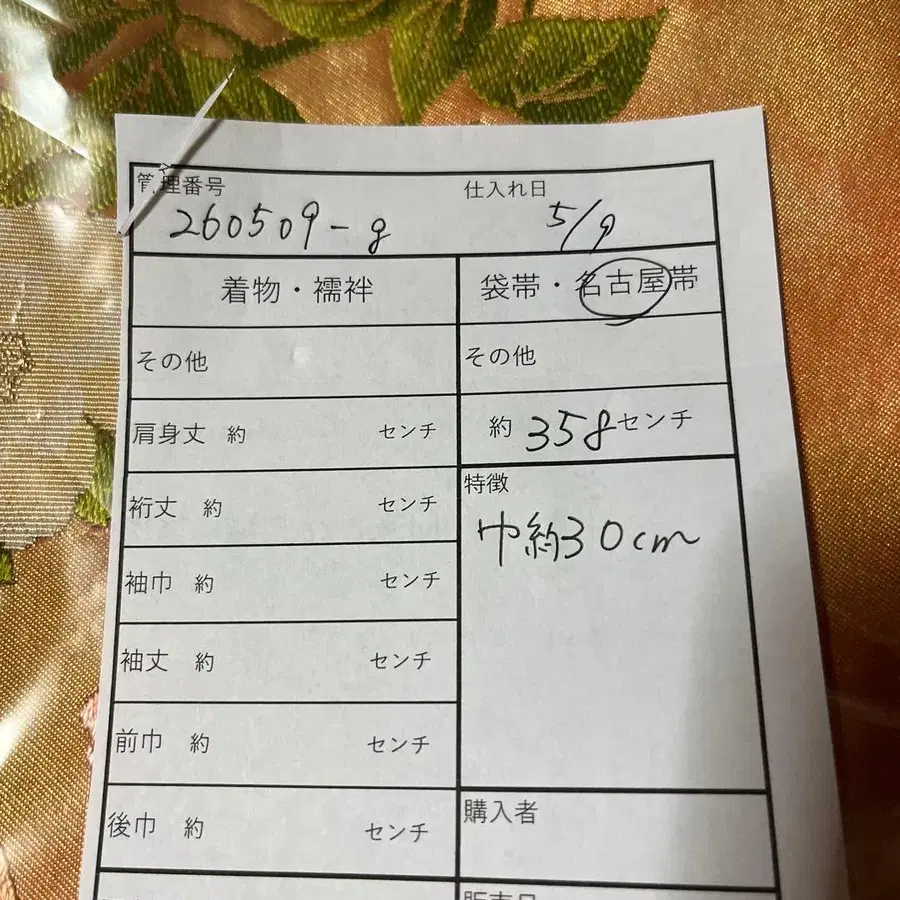 管理番号 仕入れ日
260509-g 5/9
着物・襦袢 袋帯・名古屋帯
その他 その他
肩身丈 約 センチ 約 358センチ
裄丈 約 センチ 特徴
巾約30cm
袖巾 約 センチ
袖丈 約 センチ
前巾 約 センチ
後巾 約 センチ 購入者